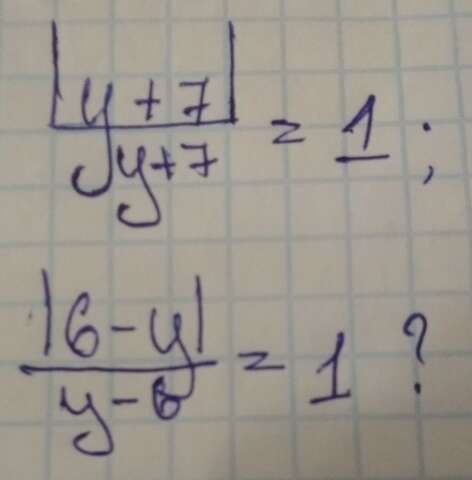 |y + 7|
y+7 = 1 ;
|6 - y|
y - 6 = 1 ?